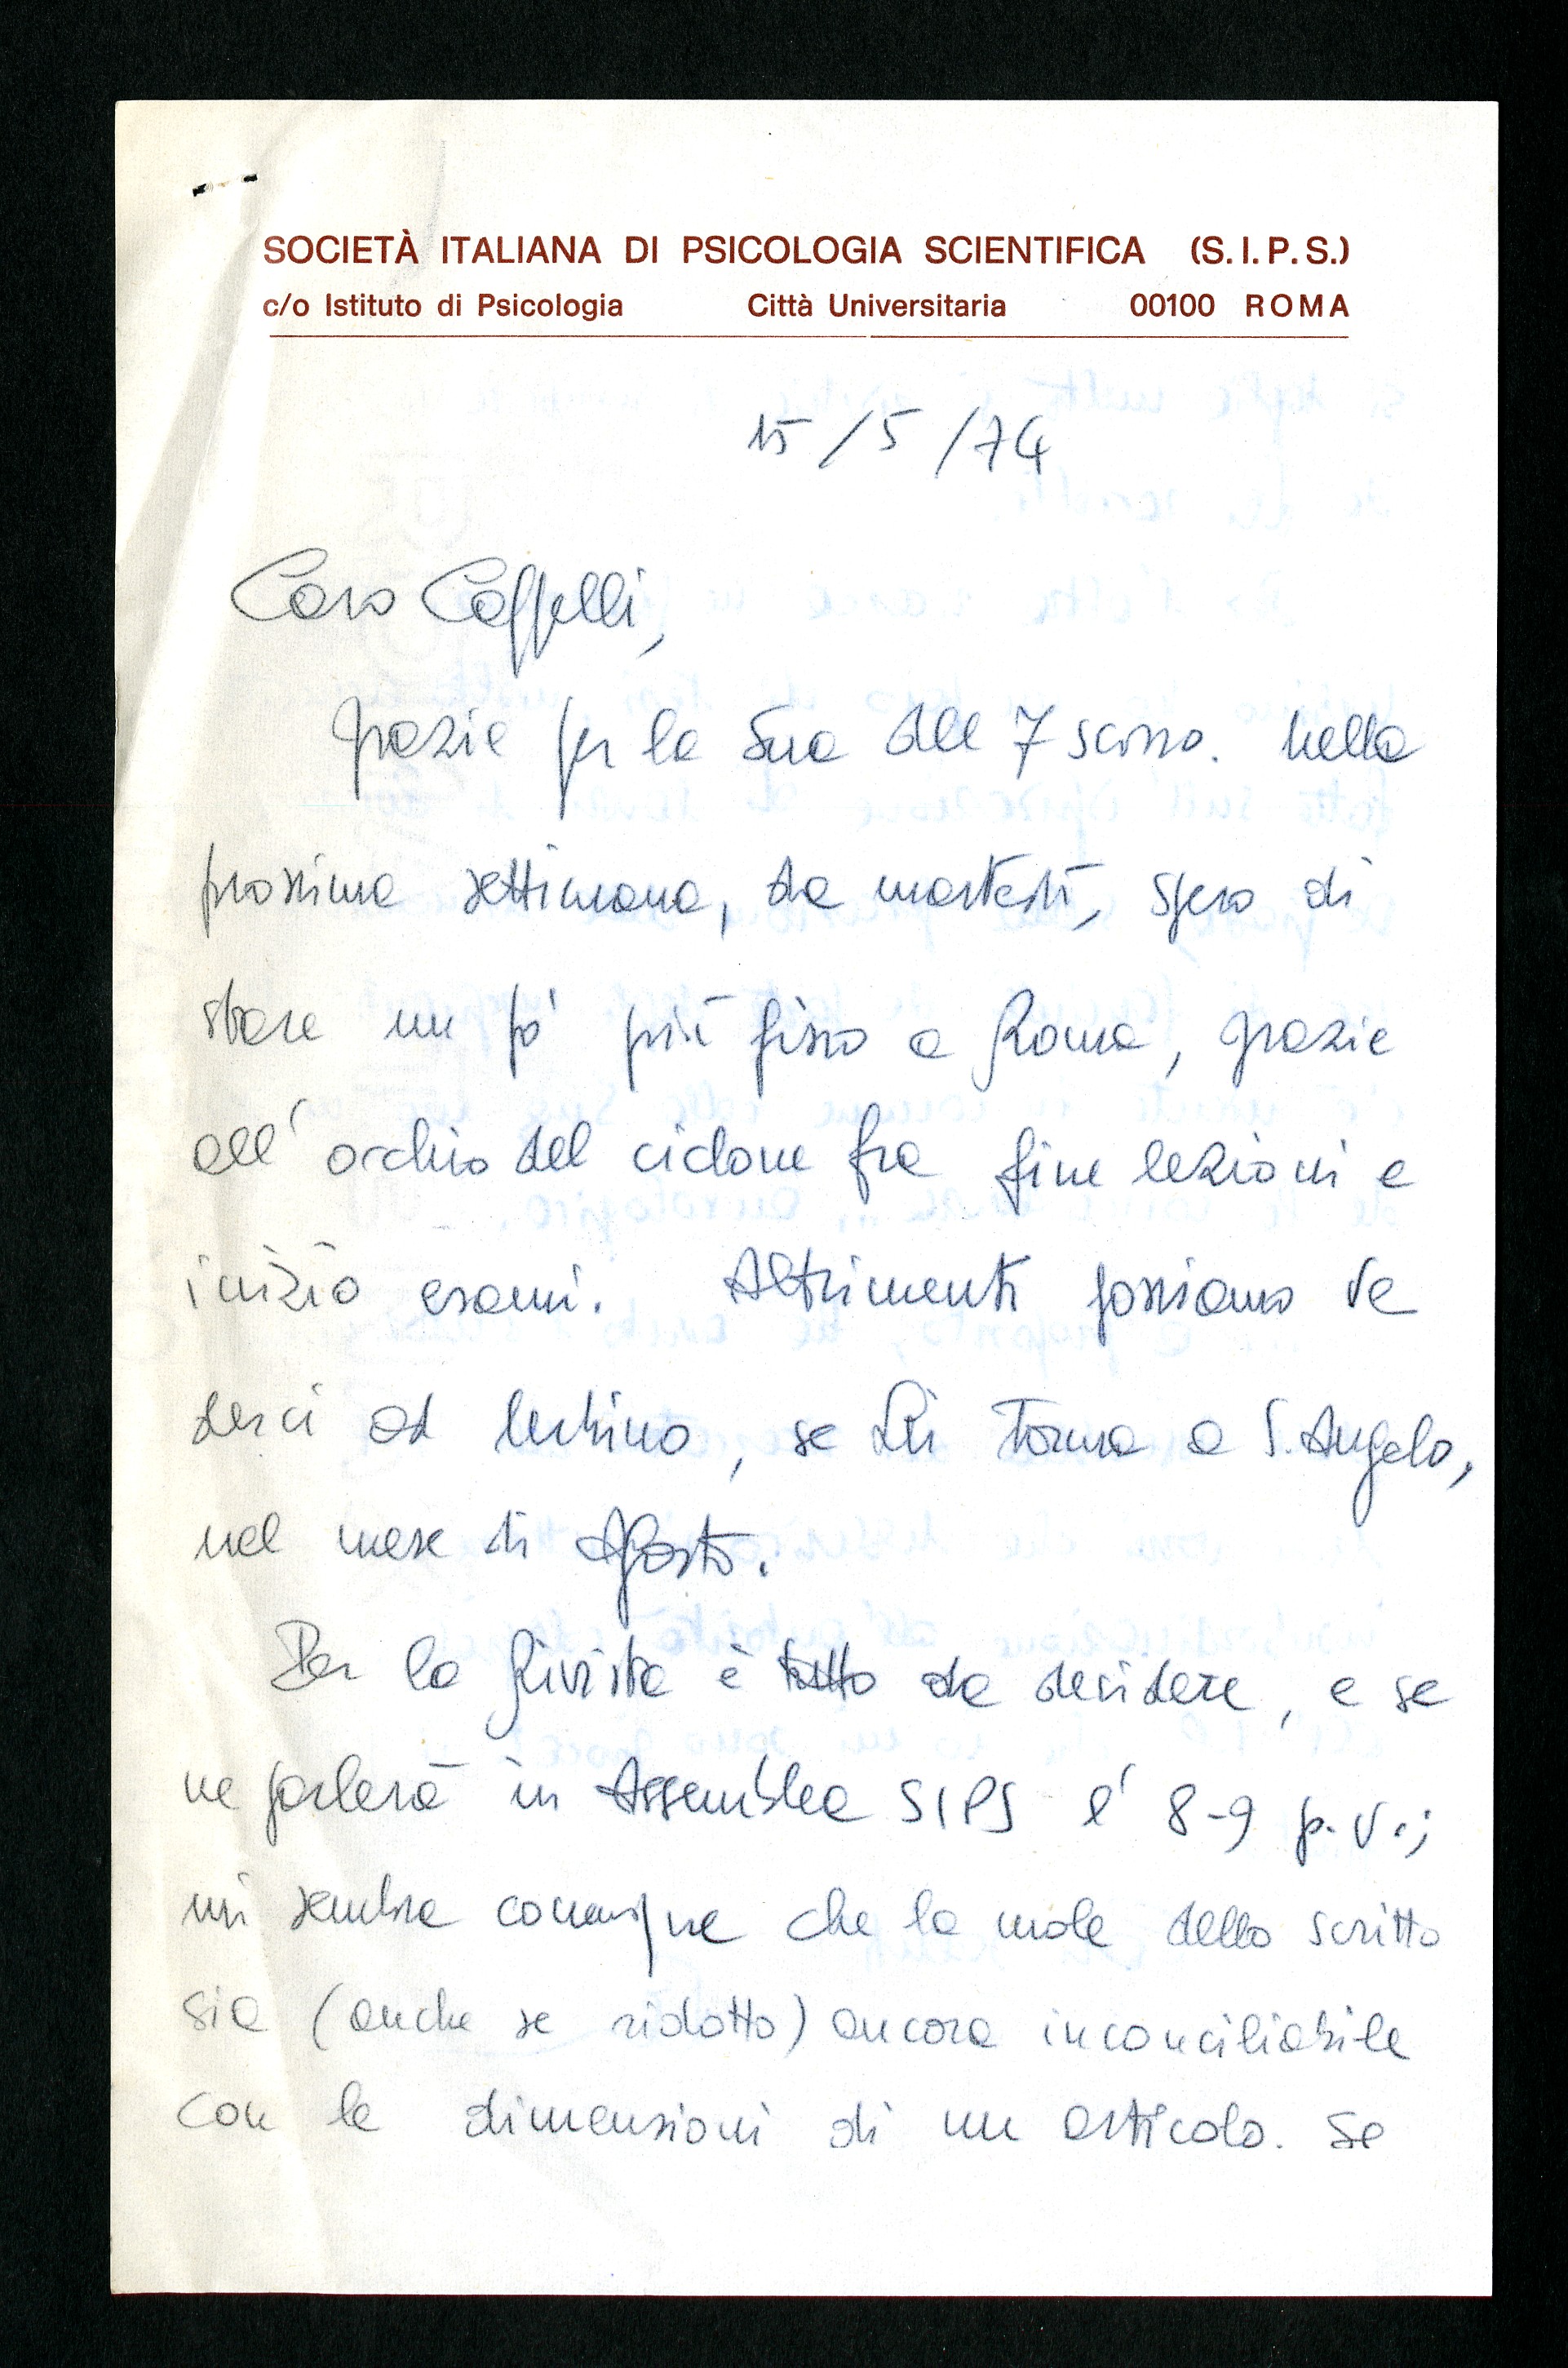 SOCIETÀ ITALIANA DI PSICOLOGIA SCIENTIFICA (S.I.P.S.)
c/o Istituto di Psicologia Città Universitaria 00100 ROMA
15/5/74
Caro Cappelli,
grazie per la Sua del 7 scorso. Nella
prossima settimana, da martedì, spero di
stare un pò più fisso a Roma, grazie
all'occhio del ciclone fra fine lezioni e
inizio esami. Altrimenti possiamo ve
derci ad Urbino, se Lei torna a S. Angelo,
nel mese di Agosto.
Per la Rivista è tutto da decidere, e se
ne parlerà in Assemblea SIPS l'8-9 p.v.;
mi sembra comunque che la mole dello scritto
sia (anche se ridotto) ancora inconciliabile
con le dimensioni di un articolo. Se